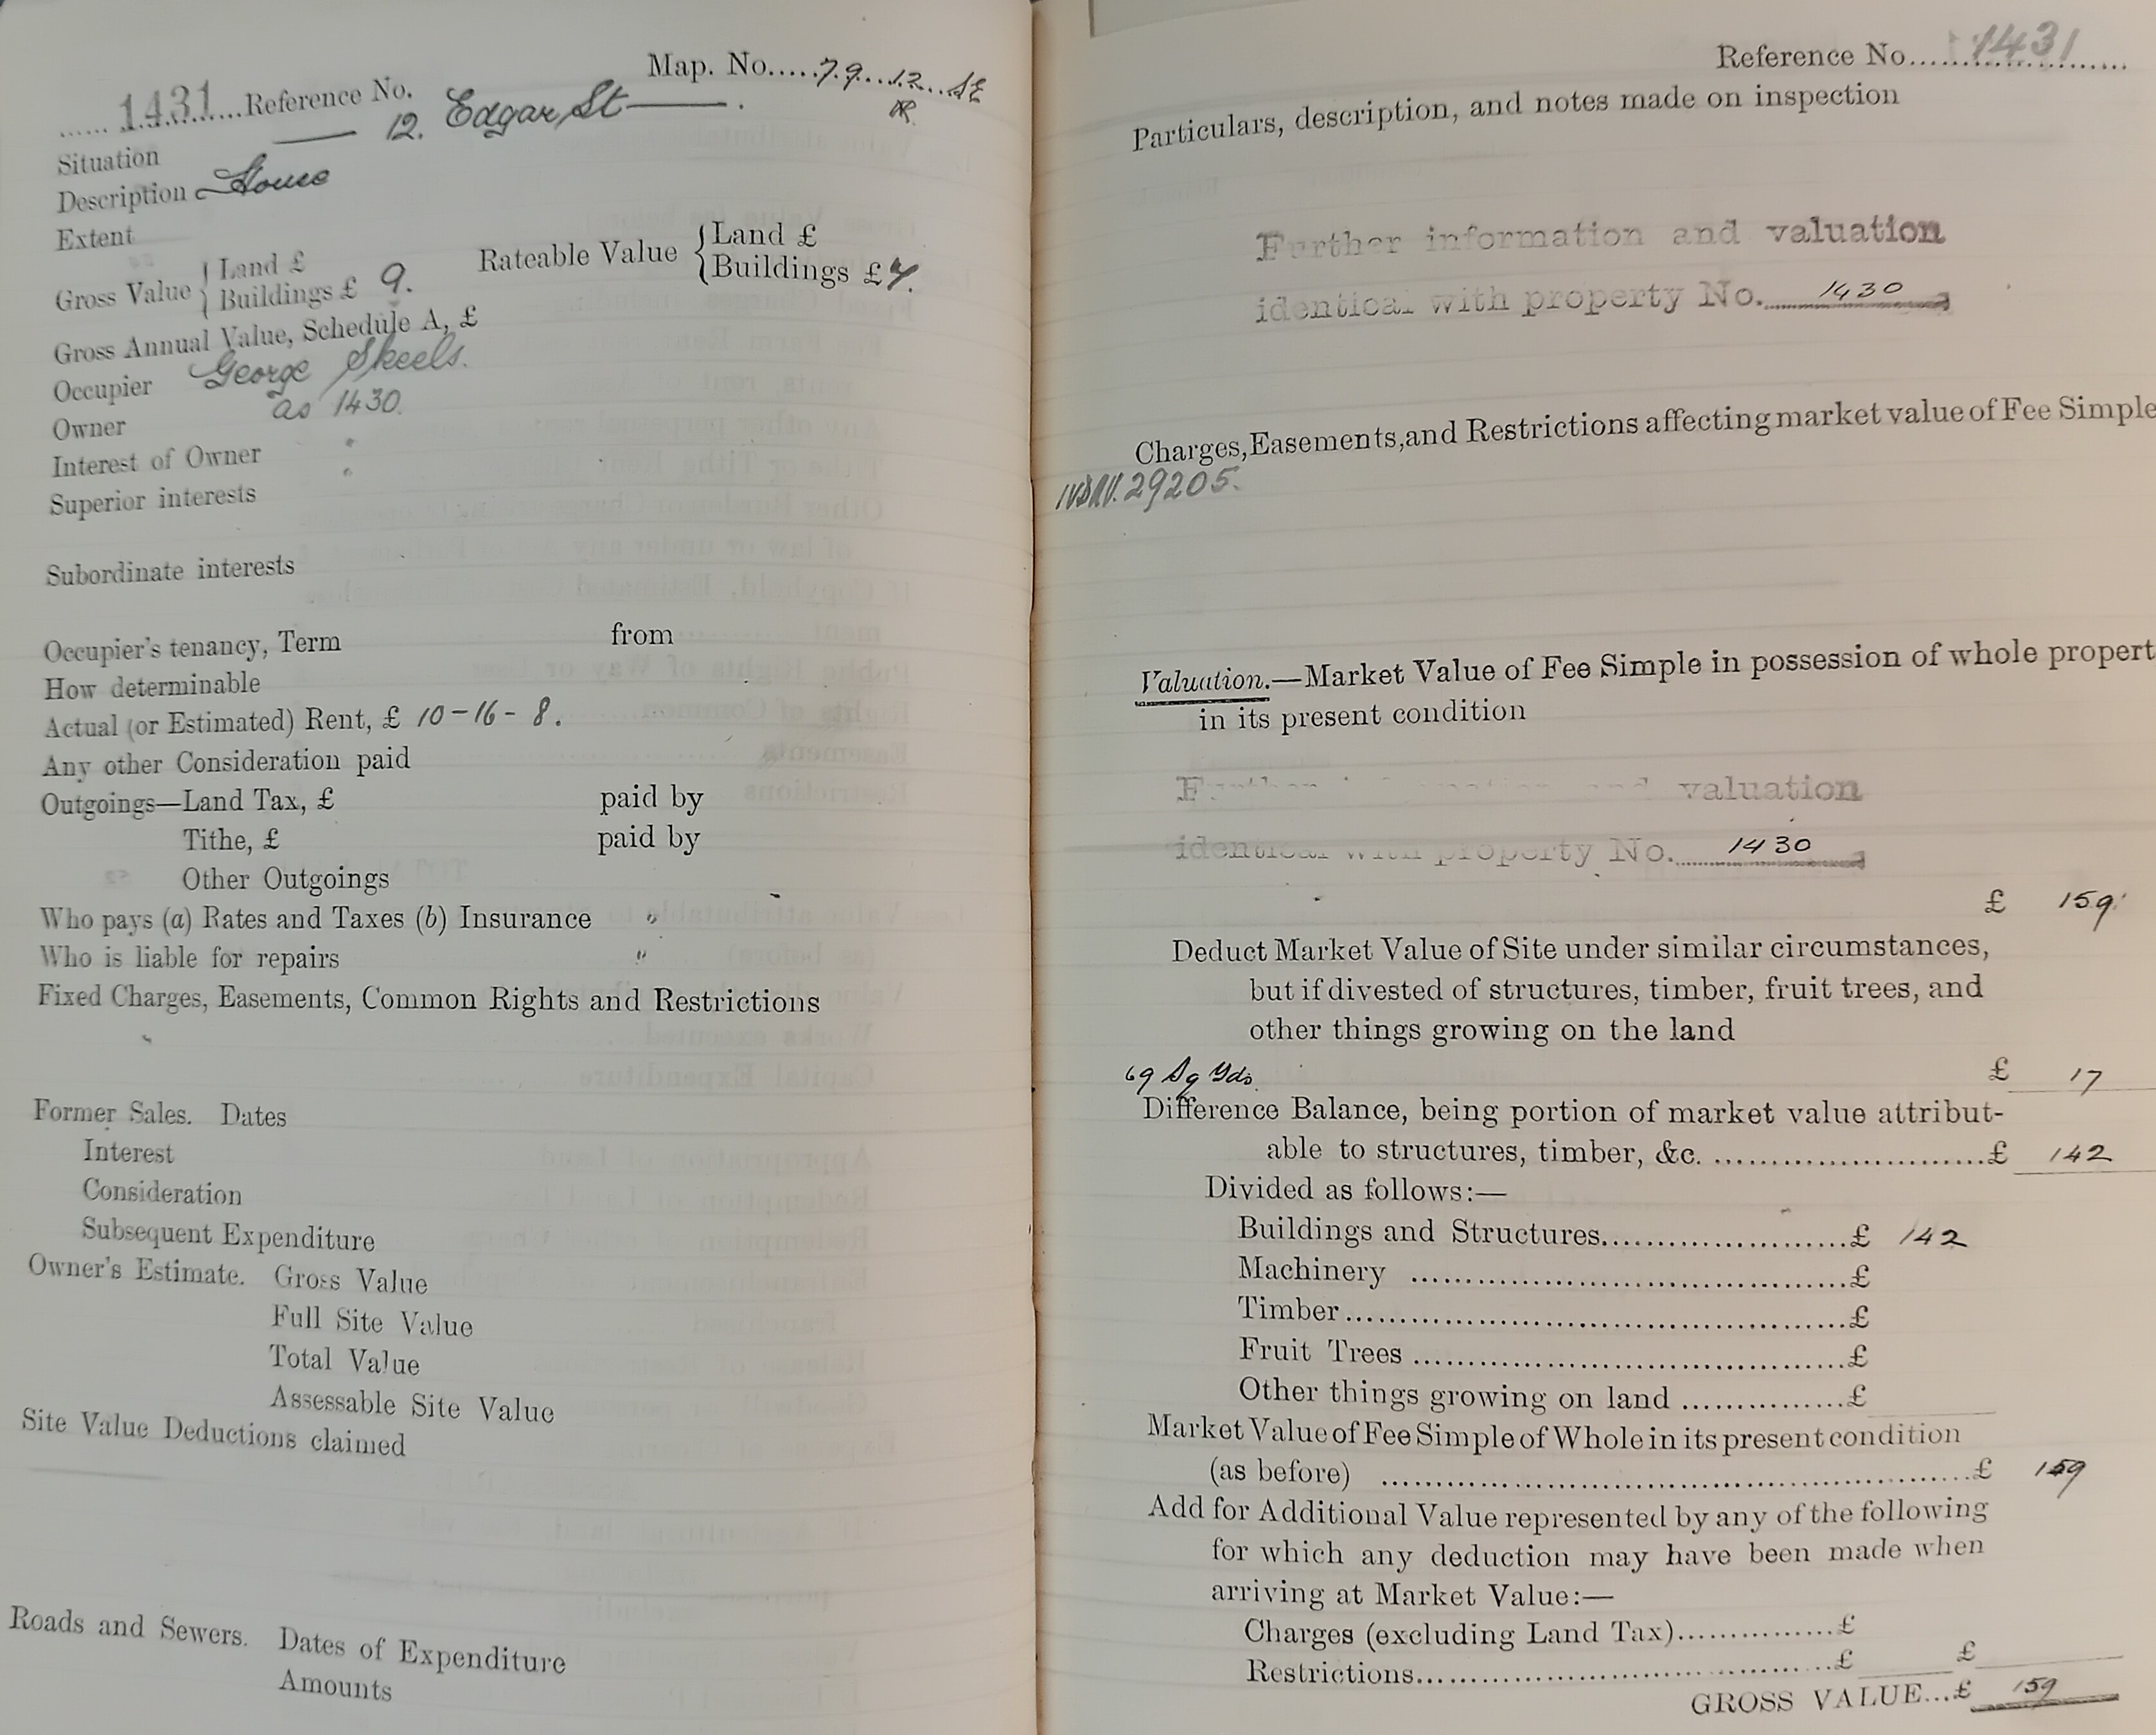 Map. No.....79...12...SE
...... 1431...Reference No.
Situation —— 12. Edgar St ——.
Description House
Extent
Gross Value { Land £
Buildings £ 9.
Rateable Value { Land £
Buildings £
Gross Annual Value, Schedule A, £
Occupier George Skeels.
Owner as 1430.
Interest of Owner "
Superior interests "
Subordinate interests
Occupier's tenancy, Term from
How determinable
Actual (or Estimated) Rent, £ 10-16-8.
Any other Consideration paid
Outgoings—Land Tax, £ paid by
Tithe, £ paid by
Other Outgoings
Who pays (a) Rates and Taxes (b) Insurance "
Who is liable for repairs "
Fixed Charges, Easements, Common Rights and Restrictions
Former Sales. Dates
Interest
Consideration
Subsequent Expenditure
Owner's Estimate. Gross Value
Full Site Value
Total Value
Assessable Site Value
Site Value Deductions claimed
Roads and Sewers. Dates of Expenditure
Amounts
Reference No. 1431
Particulars, description, and notes made on inspection
Further information and valuation
identical with property No. 1430
Charges, Easements, and Restrictions affecting market value of Fee Simple
29205.
Valuation.—Market Value of Fee Simple in possession of whole propert
in its present condition
Further information and valuation
identical with property No. 1430
£ 159
Deduct Market Value of Site under similar circumstances,
but if divested of structures, timber, fruit trees, and
other things growing on the land
69 Sq Yds. £ 17
Difference Balance, being portion of market value attribut-
able to structures, timber, &c. ........................£ 142
Divided as follows:—
Buildings and Structures......................£ 142
Machinery ......................................£
Timber..............................................£
Fruit Trees ......................................£
Other things growing on land ...............£
Market Value of Fee Simple of Whole in its present condition
(as before) ..........................................£ 159
Add for Additional Value represented by any of the following
for which any deduction may have been made when
arriving at Market Value:—
Charges (excluding Land Tax)...............£
Restrictions......................................£ £
GROSS VALUE...£ 159